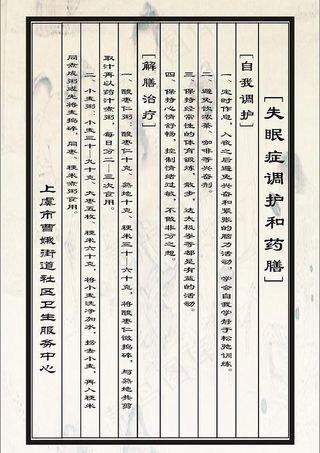 [失眠症调护和药膳]
[自我调护]
一、定时作息，入夜之后避免兴奋和紧张的脑力活动，学会自我学静于松弛训练。
二、避免饮浓茶、咖啡等兴奋剂。
三、保持经常性的体育锻炼，散步，达太极拳等都是有益的活动。
四、保持心情舒畅，控制情绪过敏，不做非分之想。
[解膳治疗]
一、酸枣仁粥：酸枣仁十克、熟地十克、粳米三十—六十克，将酸枣仁微捣碎，与熟地共煎
取汁再以药汁煮粥，每日分二—三次食用。
二、小麦粥：小麦三十—九十克、大枣五枚、粳米六十克，将小麦洗净加水，捞去小麦，再入粳米
同煮成粥或先将麦捣碎，同枣、粳米煮粥食用。
上虞市曹娥街道社区卫生服务中心